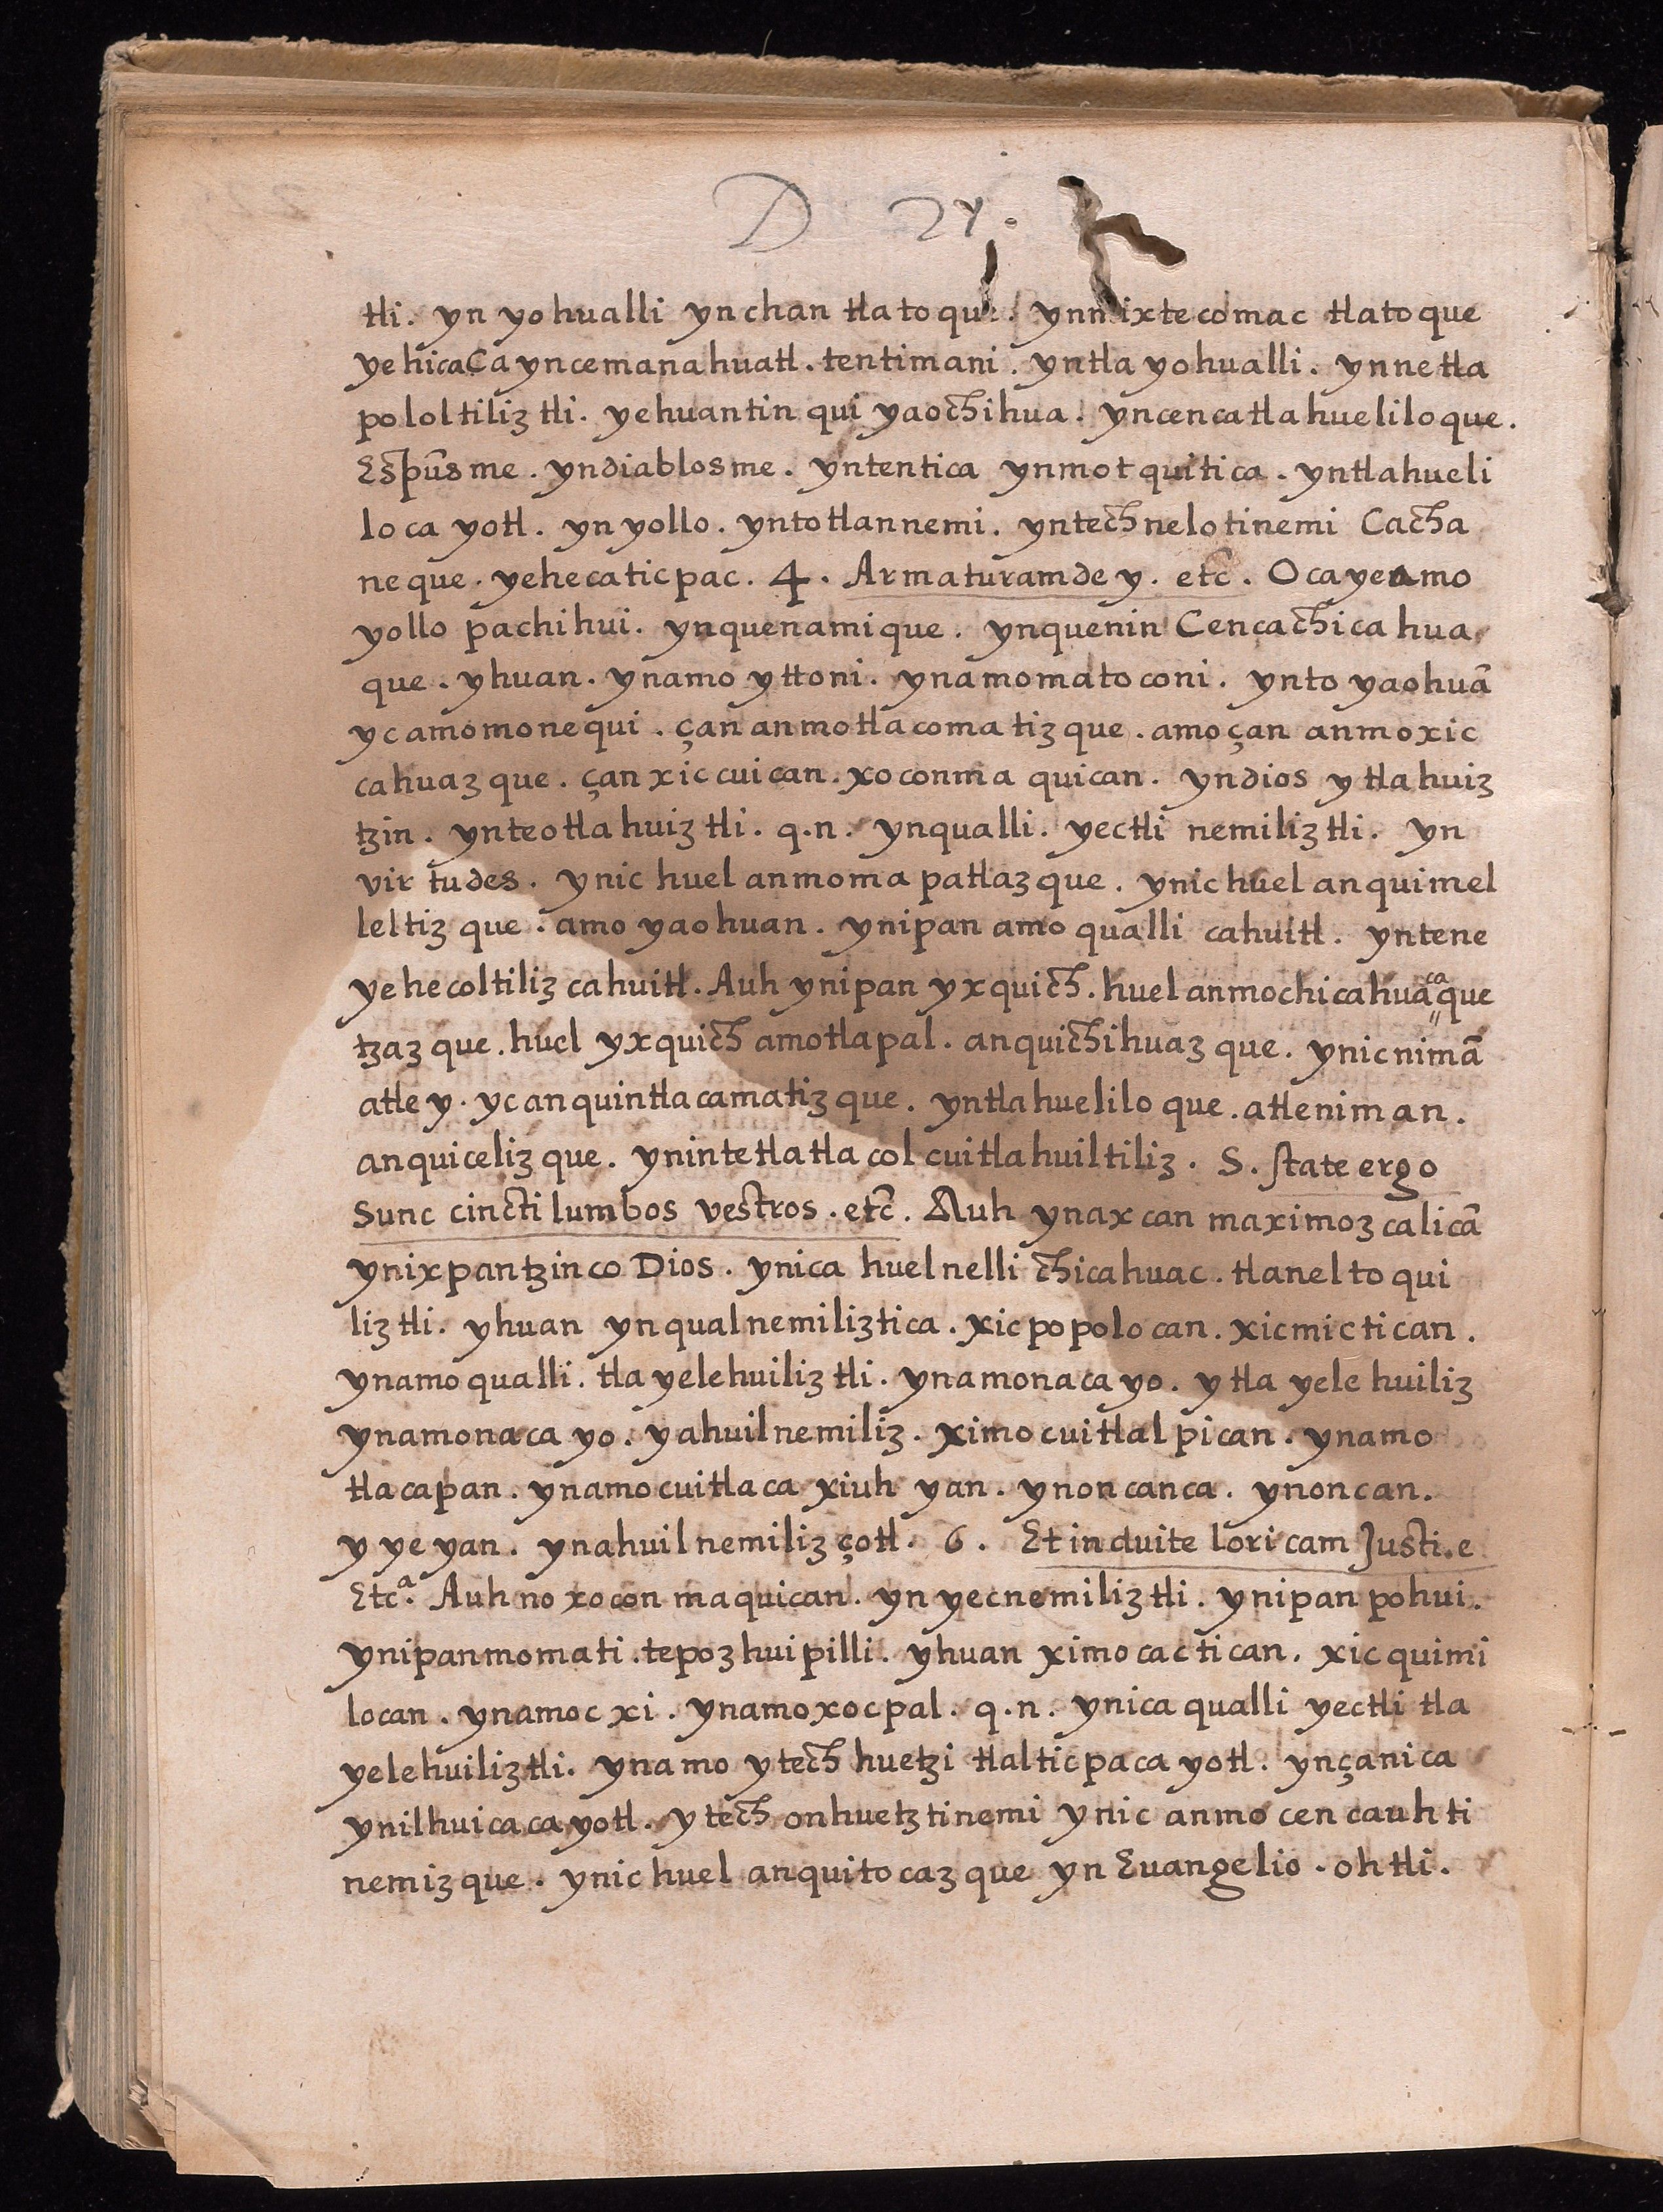 D 21.
tli. yn yohualli ynchan tlatoque. ynmixtecomac tlatoque
yehicaCa yncemanahuatl. tentimani. yntla yohualli. ynnetla
pololtiliztli. yehuantin qui yaochihua. yncencatlahueliloque.
Espũsme. yndiablosme. yntentica ynmotquitica. yntlahueli
loca yotl. yn yollo. yntotlannemi. yntechnelotinemi Cacha
neque. yehecaticpac. 4. Armaturamdey. etc̃. Ocayeamo
yollo pachihui. ynquenamique. ynquenin Cencachicahua
que. yhuan. ynamo yttoni. ynamomatoconi. ynto yaohuã
yc amomonequi. çan anmotlacomatizque. amoçan anmoxic
cahuazque. çan xiccuican. xoconmaquican. yndios ytlahuiz
tzin. ynteotlahuiztli. q.n. ynqualli. yectli nemiliztli. yn
virtudes. ynic huel anmomapatlazque. ynic huel anquimel
leltizque. amo yaohuan. ynipan amo qualli cahuitl. yntene
yehecoltiliz cahuitl. Auh ynipan yxquich. huel anmochicahuacaque
tzazque. huel yxquich amotlapal. anquichihuazque. ynicnimã
atle y. yc anquintlacamatizque. yntlahueliloque. atleniman.
anquicelizque. ynintetlatlacolcuitlahuiltiliz. S. state ergo
Sunc cincti lumbos vestros. etc̃. Auh ynaxcan maximozcalicã
ynixpantzinco Dios. ynica huelnelli chicahuac. tlaneltoqui
liztli. yhuan ynqualnemiliztica. xicpopolocan. xicmictican.
ynamoqualli. tla yelehuiliztli. ynamonacayo. ytla yelehuiliz
ynamonacayo. yahuilnemiliz. ximocuitlalpican. ynamo
tlacapan. ynamocuitlacaxiuhyan. ynoncanca. ynoncan.
y yeyan. ynahuilnemilizçotl. 6. Et induite loricam Justi.e
Etcª. Auh no xoconmaquican. yn yecnemiliztli. ynipan pohui.
ynipanmomati. tepozhuipilli. yhuan ximocactican. xicquimi
locan. ynamocxi. ynamoxocpal. q.n. ynica qualli yectli tla
yelehuiliztli. ynamo ytech huetzi tlalticpacayotl. ynçanica
ynilhuicacayotl. ytech onhuetztinemi ynic anmocencauhti
nemizque. ynic huel anquitocazque yn Euangelio. ohtli.